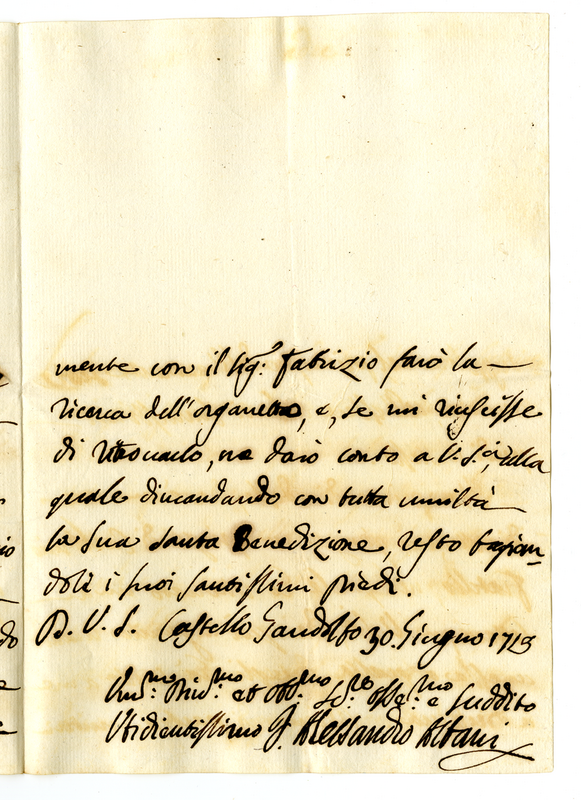 mente con il Sig.r Fabrizio farò la
ricerca dell'organetto, e, se mi riuscisse
di ritrovarlo, ne darò conto a V. S.à, alla
quale dimandando con tutta umiltà
la Sua Santa Benedizione, resto bagian-
doli i suoi Santissimi Piedi.
D. V. S. Castello Gandolfo 30. Giugno 1713
Um.mo et Obb.mo Se.re Osse.mo e Suddito
Ubidientissimo Alessandro Albani